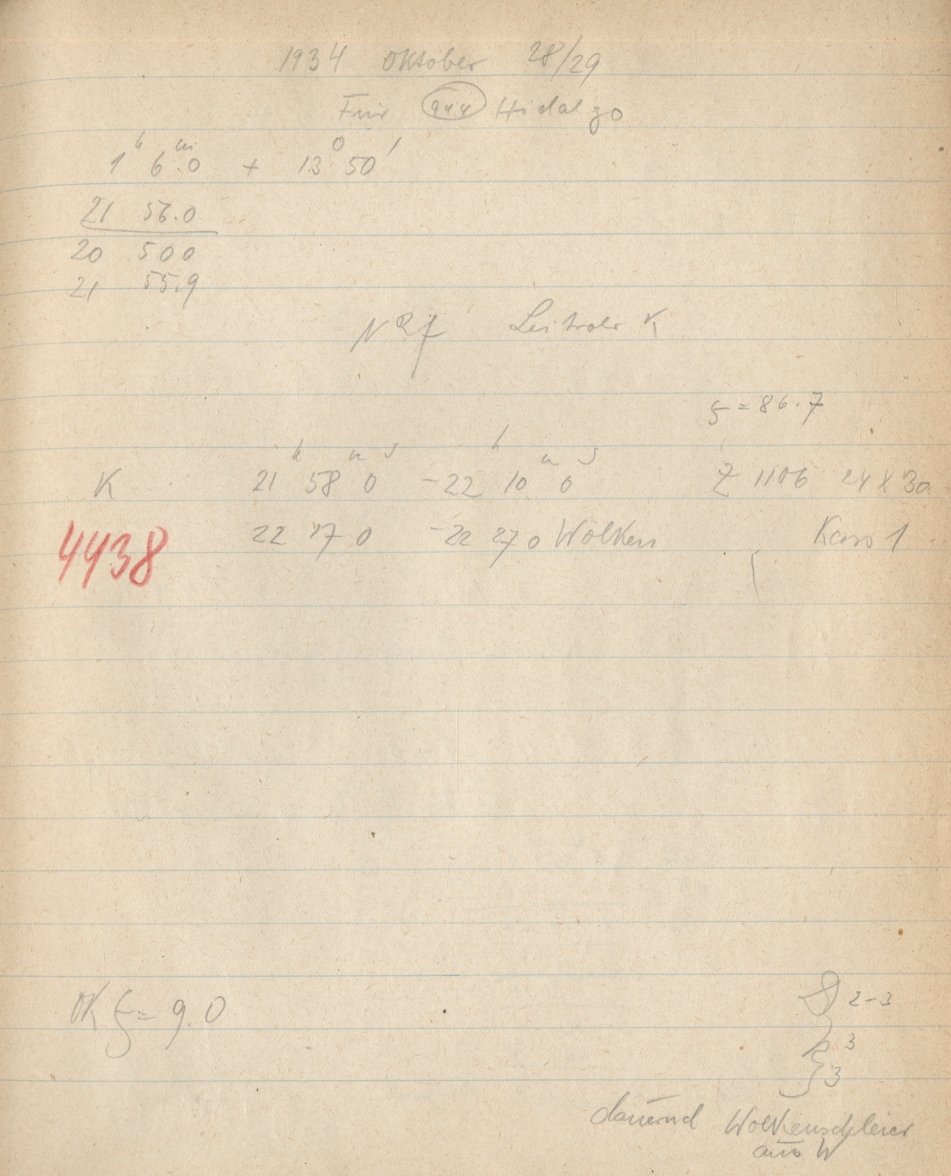 1934 Oktober 28/29
Für (944) Hidalgo
1h 6m.0 + 13° 50'
21 56.0
20 500
21 55.9
Leitrohr K
ξ = 86.7
K 21h 58m 0s - 22h 10m 0s Z 1106 24 X 30
4438 22 17 0 - 22 27 0 Wolken Karo 1
OK ξ = 9.0
2-3
3
3
dauernd Wolkenschleier
aus W